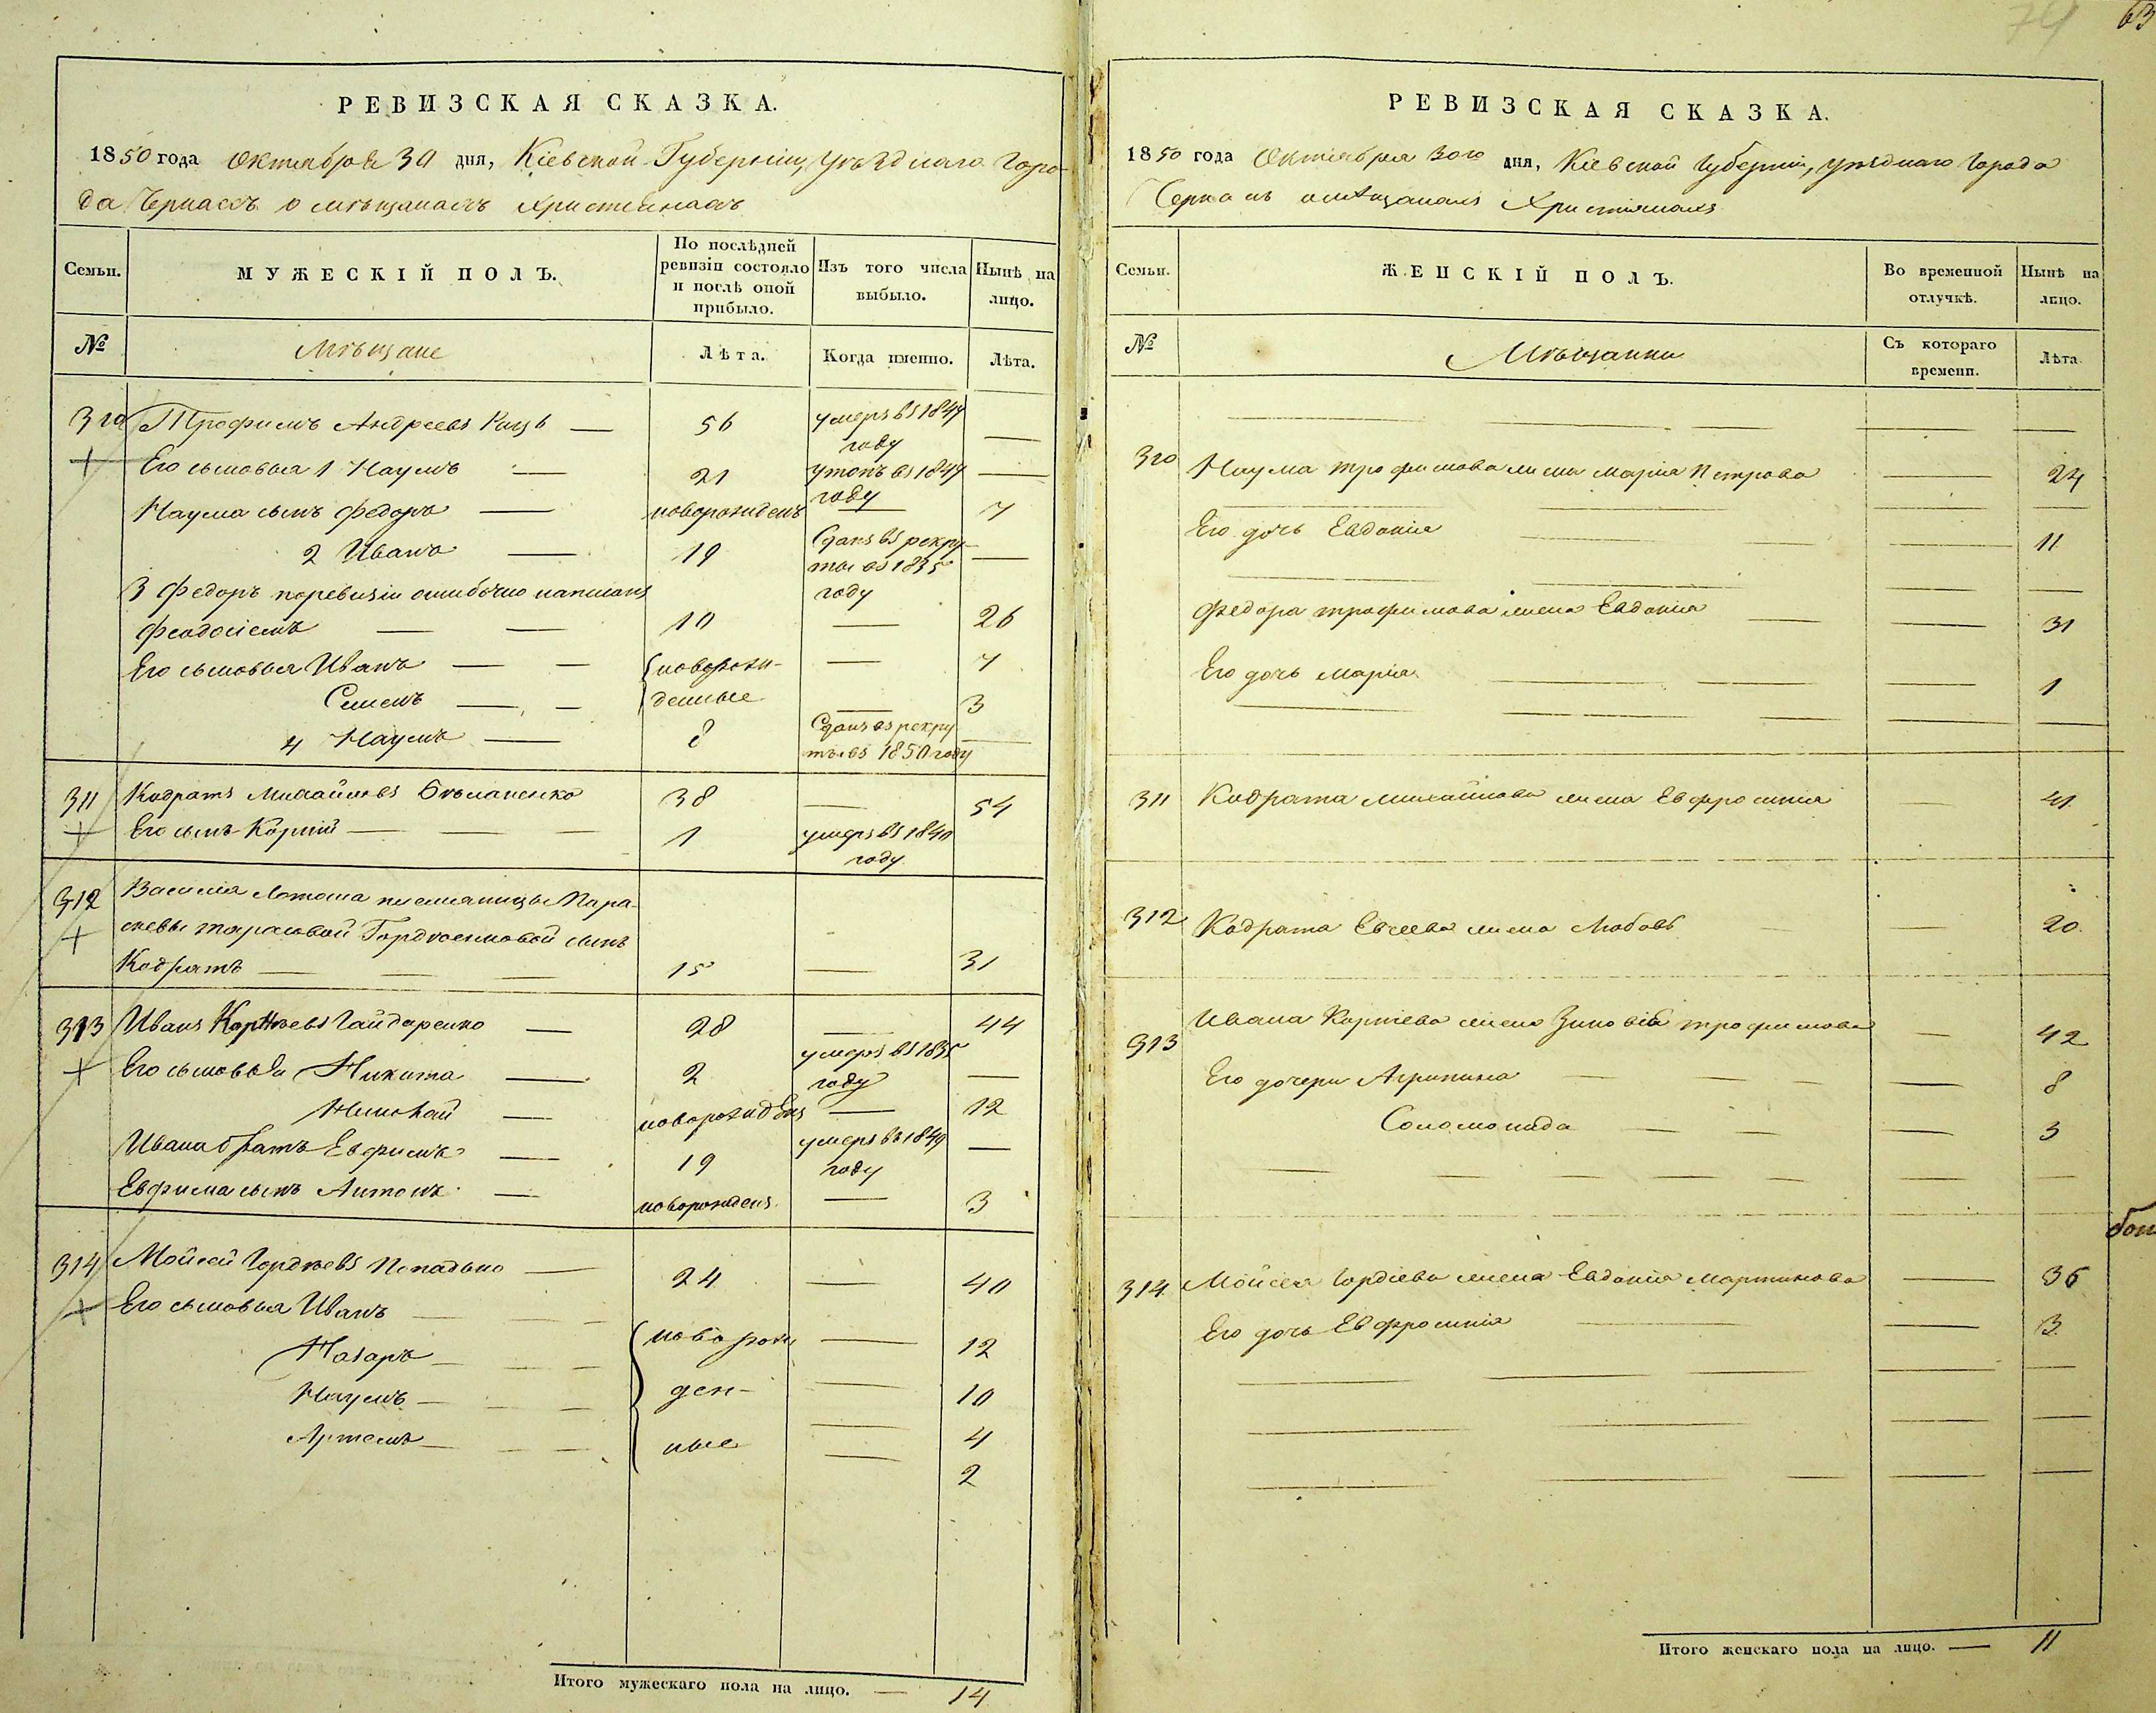 74
63
РЕВИЗСКАЯ СКАЗКА.
1850 года Октября 30 дня, Кіевской Губерніи, уѣзднаго Горо-
да Черкасъ о мѣщанахъ Христіянахъ
Семьи.
МУЖЕСКІЙ ПОЛЪ.
По послѣдней ревизіи состояло и послѣ оной прибыло.
Изъ того числа выбыло.
Нынѣ на лицо.
№
Мѣщане
Лѣта.
Когда именно.
Лѣта.
310 Трофимъ Андреевъ 56 умеръ въ 1844 году
Его сыновья 1 Наумъ 21 утопъ въ 1844 году
Наума сынъ Федоръ новорожденъ 7
2 Иванъ 19 Сданъ въ рекру-
ты въ 1835 году
3 Федоръ поревизіи ошибочно написанъ
Феодосіемъ 10 26
Его сыновья Иванъ новорож- 7
Семенъ денные 3
4 Наумъ 8 Сданъ въ рекру
ты въ 1850 году
311 Кодратъ Михайловъ 38 54
Его сынъ Корнѣй 1 умеръ въ 1840
году
312 Василія племяницы Пара-
скевы Тарасовой сынъ
Кодратъ 15 31
313 Иванъ Корнѣевъ Гайдаренко 28 44
Его сыновья Никита 2 умеръ въ 1835 году
Николай новорожденъ 12
Ивана братъ Евфимъ 19 умеръ въ 1849 году
Евфима сынъ Антонъ новорожденъ 3
314 Мойсей Гордѣевъ Попадько 24 40
Его сыновья Иванъ новорож 12
Назаръ ден- 10
Наумъ ные 4
Артемъ 2
Итого мужескаго пола на лицо. 14
РЕВИЗСКАЯ СКАЗКА.
1850 года Октября 30го дня, Кіевской Губерніи, уѣзднаго Города
Черкасъ о мѣщанахъ Христіянахъ
Семьи.
ЖЕНСКІЙ ПОЛЪ.
Во временной отлучкѣ.
Нынѣ на лицо.
№
Мѣщанки
Съ котораго времени.
Лѣта
310 Наума Трофимова жена Марія Петрова 24
Его дочь Евдокія 11
Федора Трофимова жена Евдокія 31
Его дочь Марія 1
311 Кодрата Михайлова жена Евфросинія 41
312 Кодрата Евсеева жена Любовь 20
313 Ивана Корнѣева жена Зиновія Трофимова 42
Его дочери Агрипина 8
Соломонида 3
314 Мойсея Гордіева жена Евдокія Мартинова 36
Его дочь Евфросинія 3
Итого женскаго пола на лицо. 11